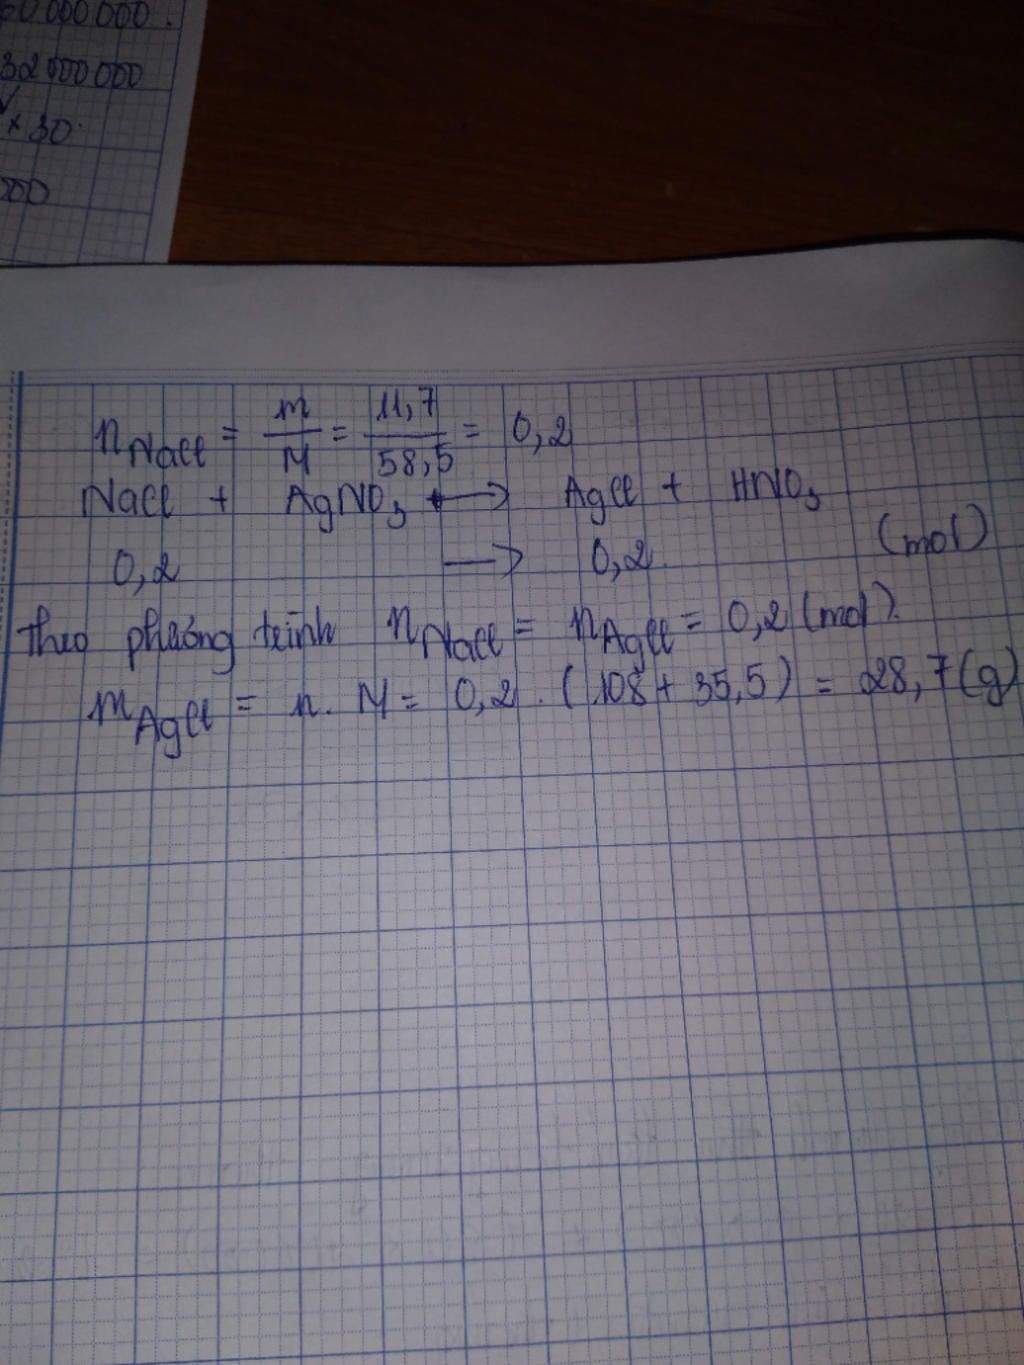 60 000 000.
32 000 000
× 30.
000
n NaCl = m/M = 11,7/58,5 = 0,2
NaCl + AgNO₃ → AgCl + HNO₃
0,2 → 0,2. (mol)
theo phương trình n NaCl = n AgCl = 0,2 (mol).
m AgCl = n. M = 0,2 . (108 + 35,5) = 28,7 (g)